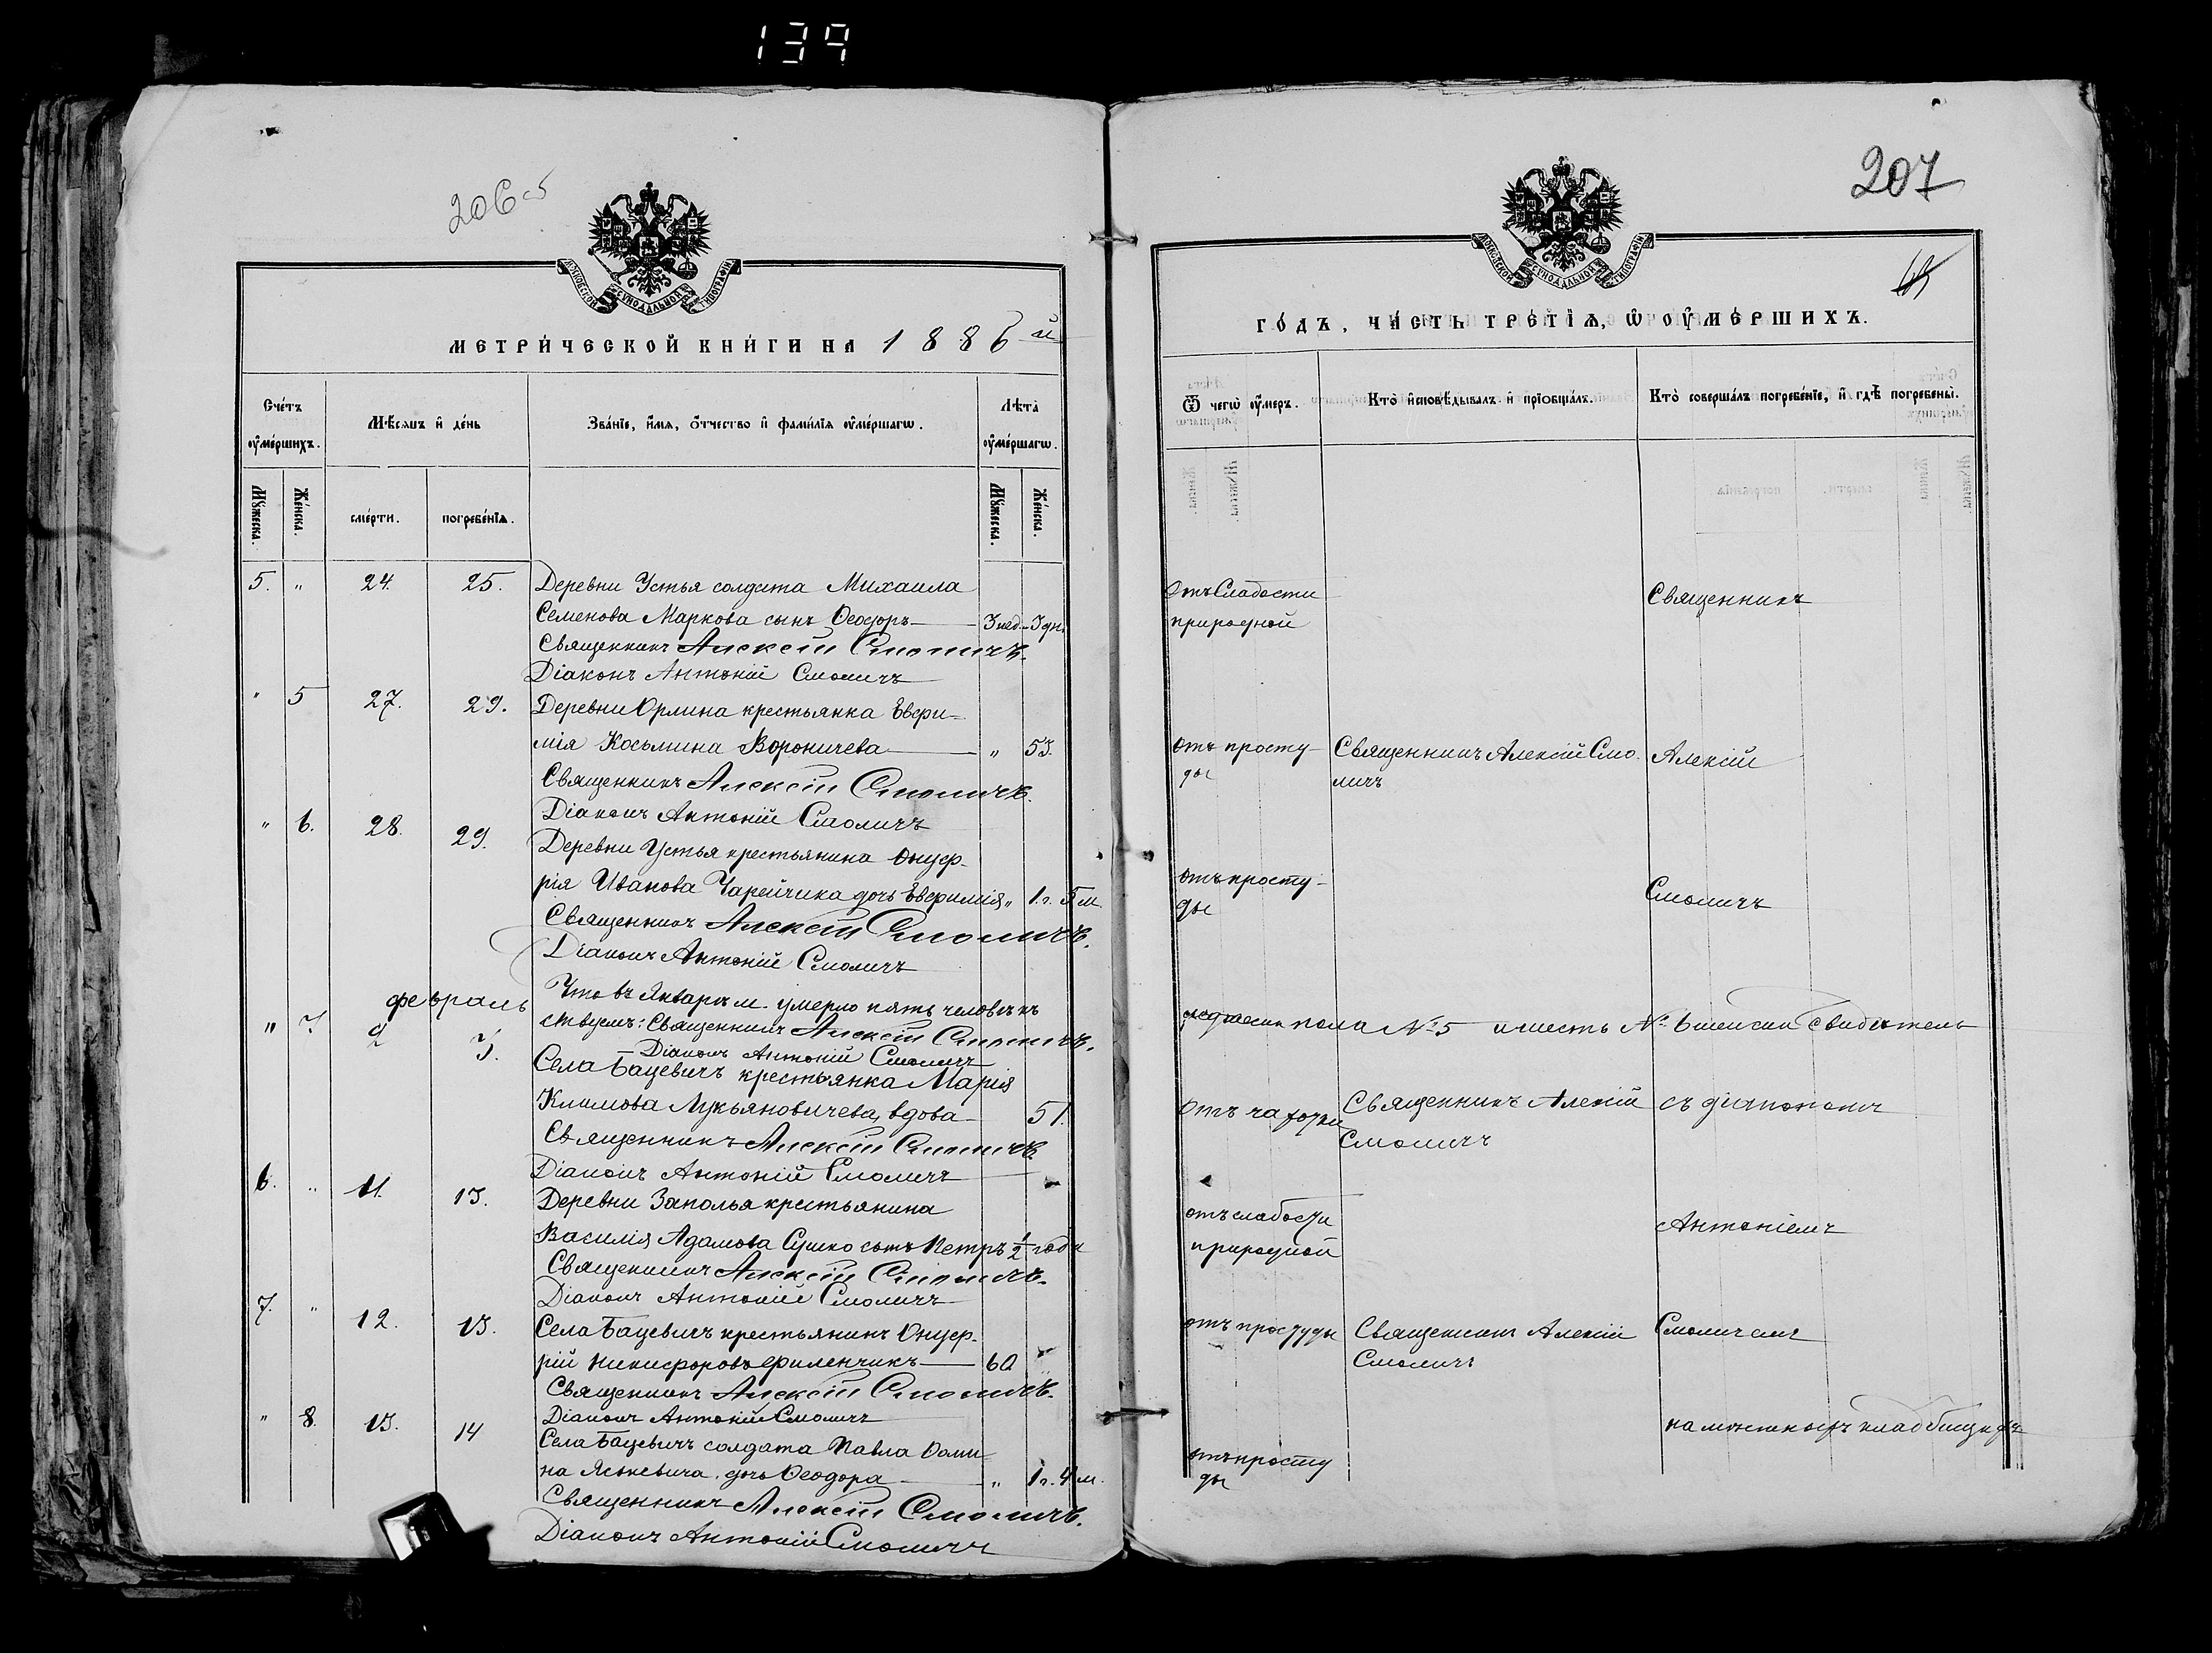 139
206 об
МОСКОВСКОЙ СѴНОДАЛЬНОЙ ТИПОГРАФІИ
МЕТРИ́ЧЕСКОЙ КНИ́ГИ НА 1886 й
Сче́тъ ᲂу҆ме́ршихъ.
Мѣ́сѧцъ и҆ де́нь
Зва́нїе, и҆́мѧ, ѻ҆́тчество и҆ фами́лїѧ ᲂу҆ме́ршагѡ.
Лѣ́та ᲂу҆ме́ршагѡ.
Мꙋ́жеска.
Же́нска.
сме́рти.
погребе́нїѧ.
Мꙋ́жеска.
Же́нска.
5. " 24. 25. Деревни Устья солдата Михаила
Семенова Маркова сынъ Ѳеодоръ 3 нед. 3 дн.
Священникъ Алексій Смоличъ.
Діаконъ Антоній Смоличъ
" 5 27. 29. Деревни Орлина крестьянка Евфи-
мія Косьмина Вороничева " 53.
Священникъ Алексій Смоличъ.
Діаконъ Антоній Смоличъ
" 6. 28. 29. Деревни Устья крестьянина Онуф-
рія Иванова Чарейчика дочь Евфимія " 1 г. 5 м.
Священникъ Алексій Смоличъ.
Діаконъ Антоній Смоличъ
февраль
Что въ Январѣ м. умерло пять человѣкъ
ствуемъ: Священникъ Алексій Смоличъ.
Діаконъ Антоній Смоличъ
" 7. 2 3. Села Бацевичъ крестьянка Марія
Климова Лукьяновичева, вдова 51.
Священникъ Алексій Смоличъ.
Діаконъ Антоній Смоличъ
6. " 11. 13. Деревни Заполья крестьянина
Василія Адамова Сушко сынъ Петръ ½ года
Священникъ Алексій Смоличъ.
Діаконъ Антоній Смоличъ
7. " 12. 13. Села Бацевичъ крестьянинъ Онуф-
рій Никифоровъ Филенчикъ 60 "
Священникъ Алексій Смоличъ.
" 8. 13. 14 Діаконъ Антоній Смоличъ
Села Бацевичъ солдата Павла Ѳоми-
на Яськевича дочь Ѳеодора " 1 г. 4 м.
Священникъ Алексій Смоличъ.
Діаконъ Антоній Смоличъ
207
МОСКОВСКОЙ СѴНОДАЛЬНОЙ ТИПОГРАФІИ
ГО́ДЪ, ЧА́СТЬ ТРЕ́ТЇѦ, Ѡ҆ ОУ҆МЕ́РШИХЪ.
Ѿ чегѡ̀ ᲂу҆́меръ.
Кто̀ и҆сповѣ́дывалъ и҆ прїѡбща́лъ.
Кто̀ соверша́лъ погребе́нїе, и҆ гдѣ̀ погребены̀.
Отъ слабости
природной
Священникъ
Отъ просту-
ды
Священникъ Алексій Смо-
личъ
Алексій
Отъ просту-
ды
Смоличъ
пола № 5 и шесть № 6 женска свидѣтель
Отъ чахотки
Священникъ Алексій
Смоличъ
съ діакономъ
отъ слабости
природной
Антоніемъ
отъ простуды
Священникъ Алексій
Смоличъ
Смоличемъ
на мѣстномъ кладбищѣ
отъ просту
ды